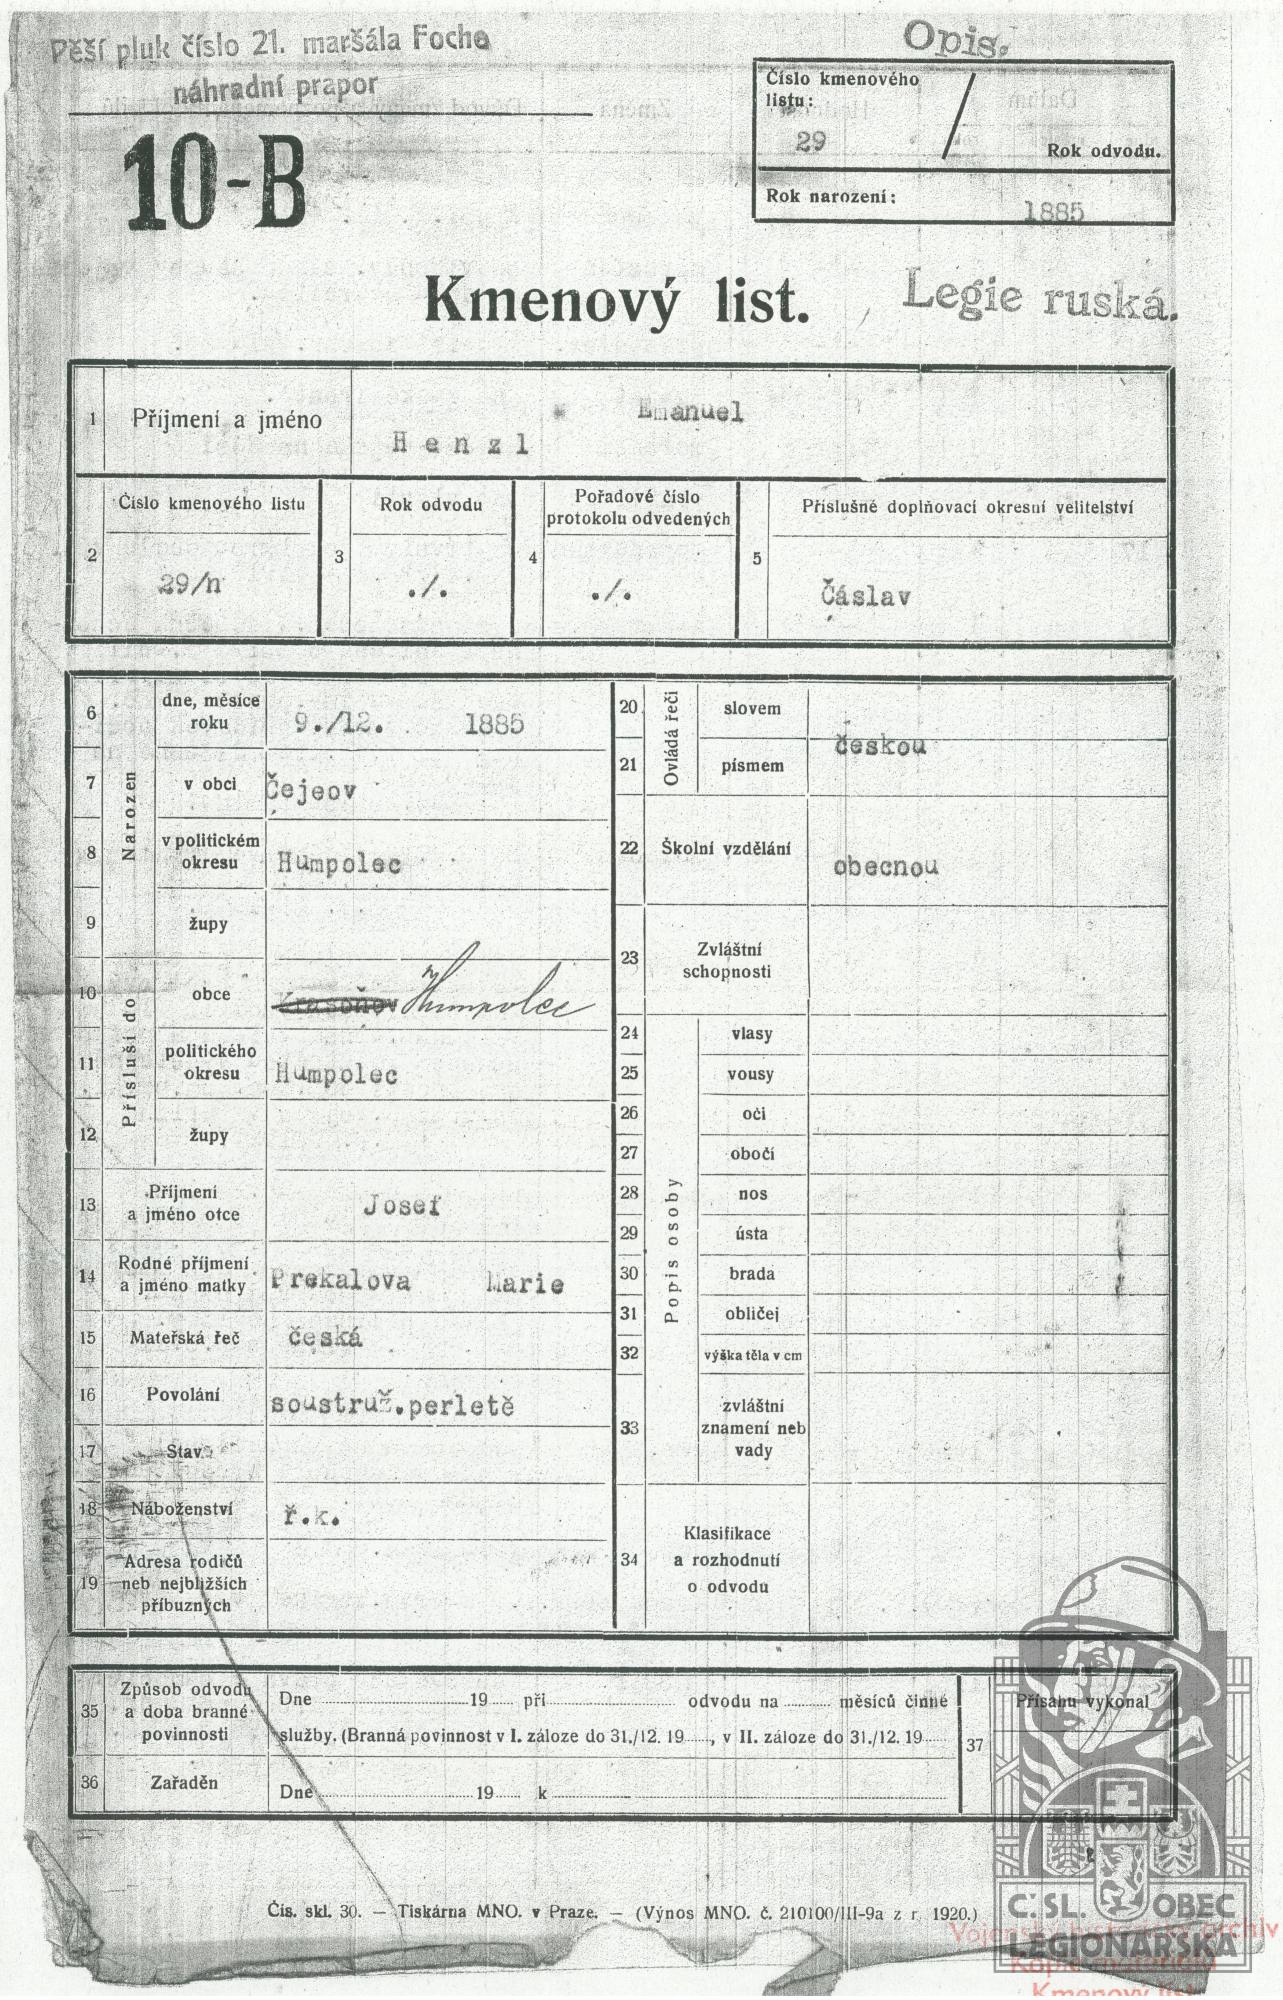 Pěší pluk číslo 21. maršála Focha
náhradní prapor
10-B
Opis.
Číslo kmenového
listu:
29 / Rok odvodu.
Rok narození: 1885
Kmenový list.
Legie ruská.
1 Příjmení a jméno Henzl Emanuel
2 Číslo kmenového listu 29/n
3 Rok odvodu ./.
4 Pořadové číslo
protokolu odvedených ./.
5 Příslušné doplňovací okresní velitelství
Čáslav
Narozen
6 dne, měsíce
roku 9./12. 1885
7 v obci Čejeov
8 v politickém
okresu Humpolec
9 župy
Přísluší do
10 obce Humpolec
11 politického
okresu Humpolec
12 župy
13 Příjmení
a jméno otce Josef
14 Rodné příjmení
a jméno matky Prekalova Marie
15 Mateřská řeč česká
16 Povolání soustruž.perletě
17 Stav
18 Náboženství ř.k.
19 Adresa rodičů
neb nejbližších
příbuzných
Ovládá řeči
20 slovem
českou
21 písmem
22 Školní vzdělání obecnou
23 Zvláštní
schopnosti
Popis osoby
24 vlasy
25 vousy
26 oči
27 obočí
28 nos
29 ústa
30 brada
31 obličej
32 výška těla v cm
33 zvláštní
znamení neb
vady
34 Klasifikace
a rozhodnutí
o odvodu
35 Způsob odvodu
a doba branné
povinnosti
Dne 19 při odvodu na měsíců činné
služby. (Branná povinnost v I. záloze do 31./12. 19 , v II. záloze do 31./12. 19
36 Zařaděn Dne 19 k
37 Přísahu vykonal
Čís. skl. 30. — Tiskárna MNO. v Praze. — (Výnos MNO. č. 210100/III-9a z r. 1920.)
Č.SL. OBEC
LEGIONÁŘSKÁ
Vojenský historický archiv
Kopie materiálu
Kmenový list